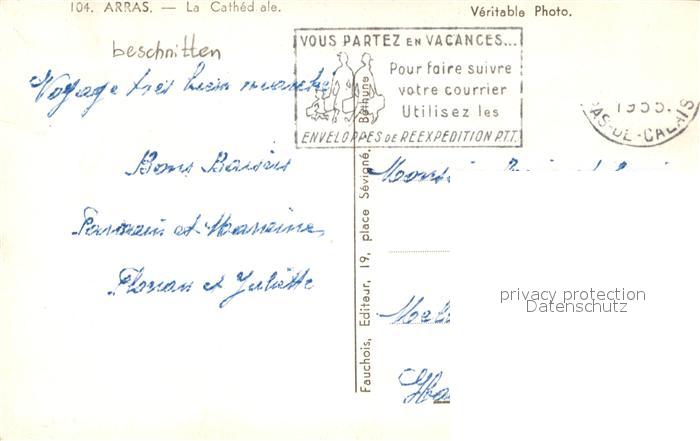 104. ARRAS. — La Cathéd ale.
Véritable Photo.
beschnitten
VOUS PARTEZ EN VACANCES...
Pour faire suivre
votre courrier
Utilisez les
ENVELOPPES DE REEXPEDITION PTT.
1955.
PAS-DE-CALAIS
Voyage très bien marché
Bons Baisers
Parrain et Marraine
Florian et Juliette
Fauchois, Editeur, 19, place Sévigné, Béthune
privacy protection
Datenschutz